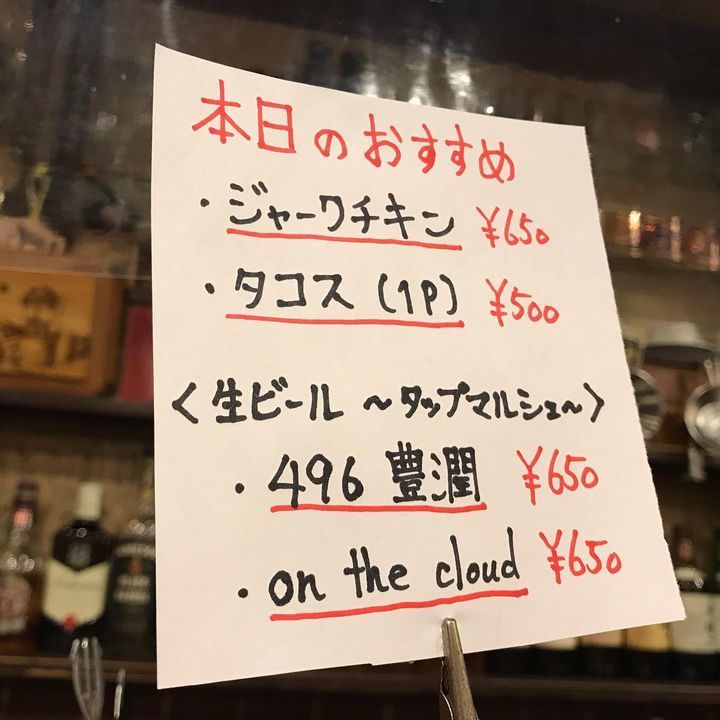 本日のおすすめ
・ジャークチキン ¥650
・タコス(1P) ¥500
〈生ビール ～タップマルシェ～〉
・496 豊潤 ¥650
・on the cloud ¥650